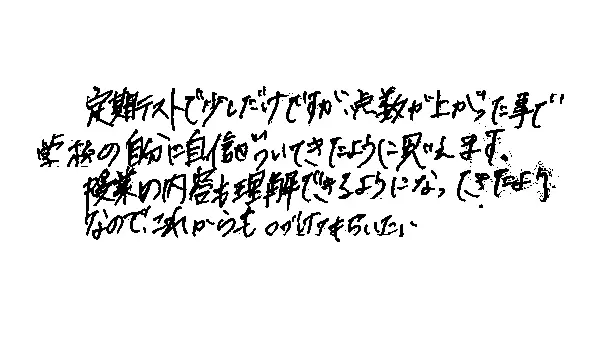 定期テストで少しだけですが、点数が上がった事で
学校の自分に自信がついてきたように見えます。
授業の内容も理解できるようになってきたよう
なので、これからもつづけてもらいたい